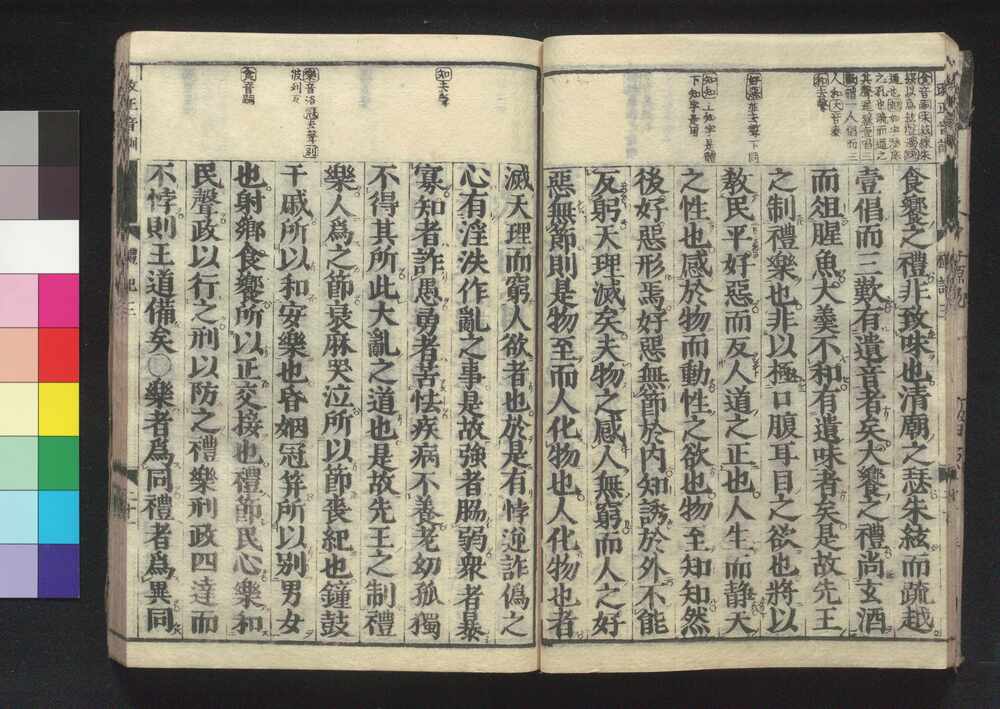 食饗之禮非致味也清廟之瑟朱絃而疏越
壹倡而三歎有遺音者矣大饗之禮尚玄酒
而俎腥魚大羹不和有遺味者矣是故先王
之制禮樂也非以極口腹耳目之欲也將以
敎民平好惡而反人道之正也人生而靜天
之性也感於物而動性之欲也物至知知然
後好惡形焉好惡無節於內知誘於外不能
反躬天理滅矣夫物之感人無窮而人之好
惡無節則是物至而人化物也人化物也者
滅天理而窮人欲者也於是有悖逆詐僞之
心有淫泆作亂之事是故強者脅弱衆者暴
寡知者詐愚勇者苦怯疾病不養老幼孤獨
不得其所此大亂之道也是故先王之制禮
樂人爲之節衰麻哭泣所以節喪紀也鐘鼓
干戚所以和安樂也昏姻冠笄所以別男女
也射鄉食饗所以正交接也禮節民心樂和
民聲政以行之刑以防之禮樂刑政四達而
不悖則王道備矣○樂者爲同禮者爲異同
好惡並去聲下同
知知上知字是體
下知字是用
知去聲
樂音洛冠去聲別
彼列反
食音嗣
改正音訓
禮記三